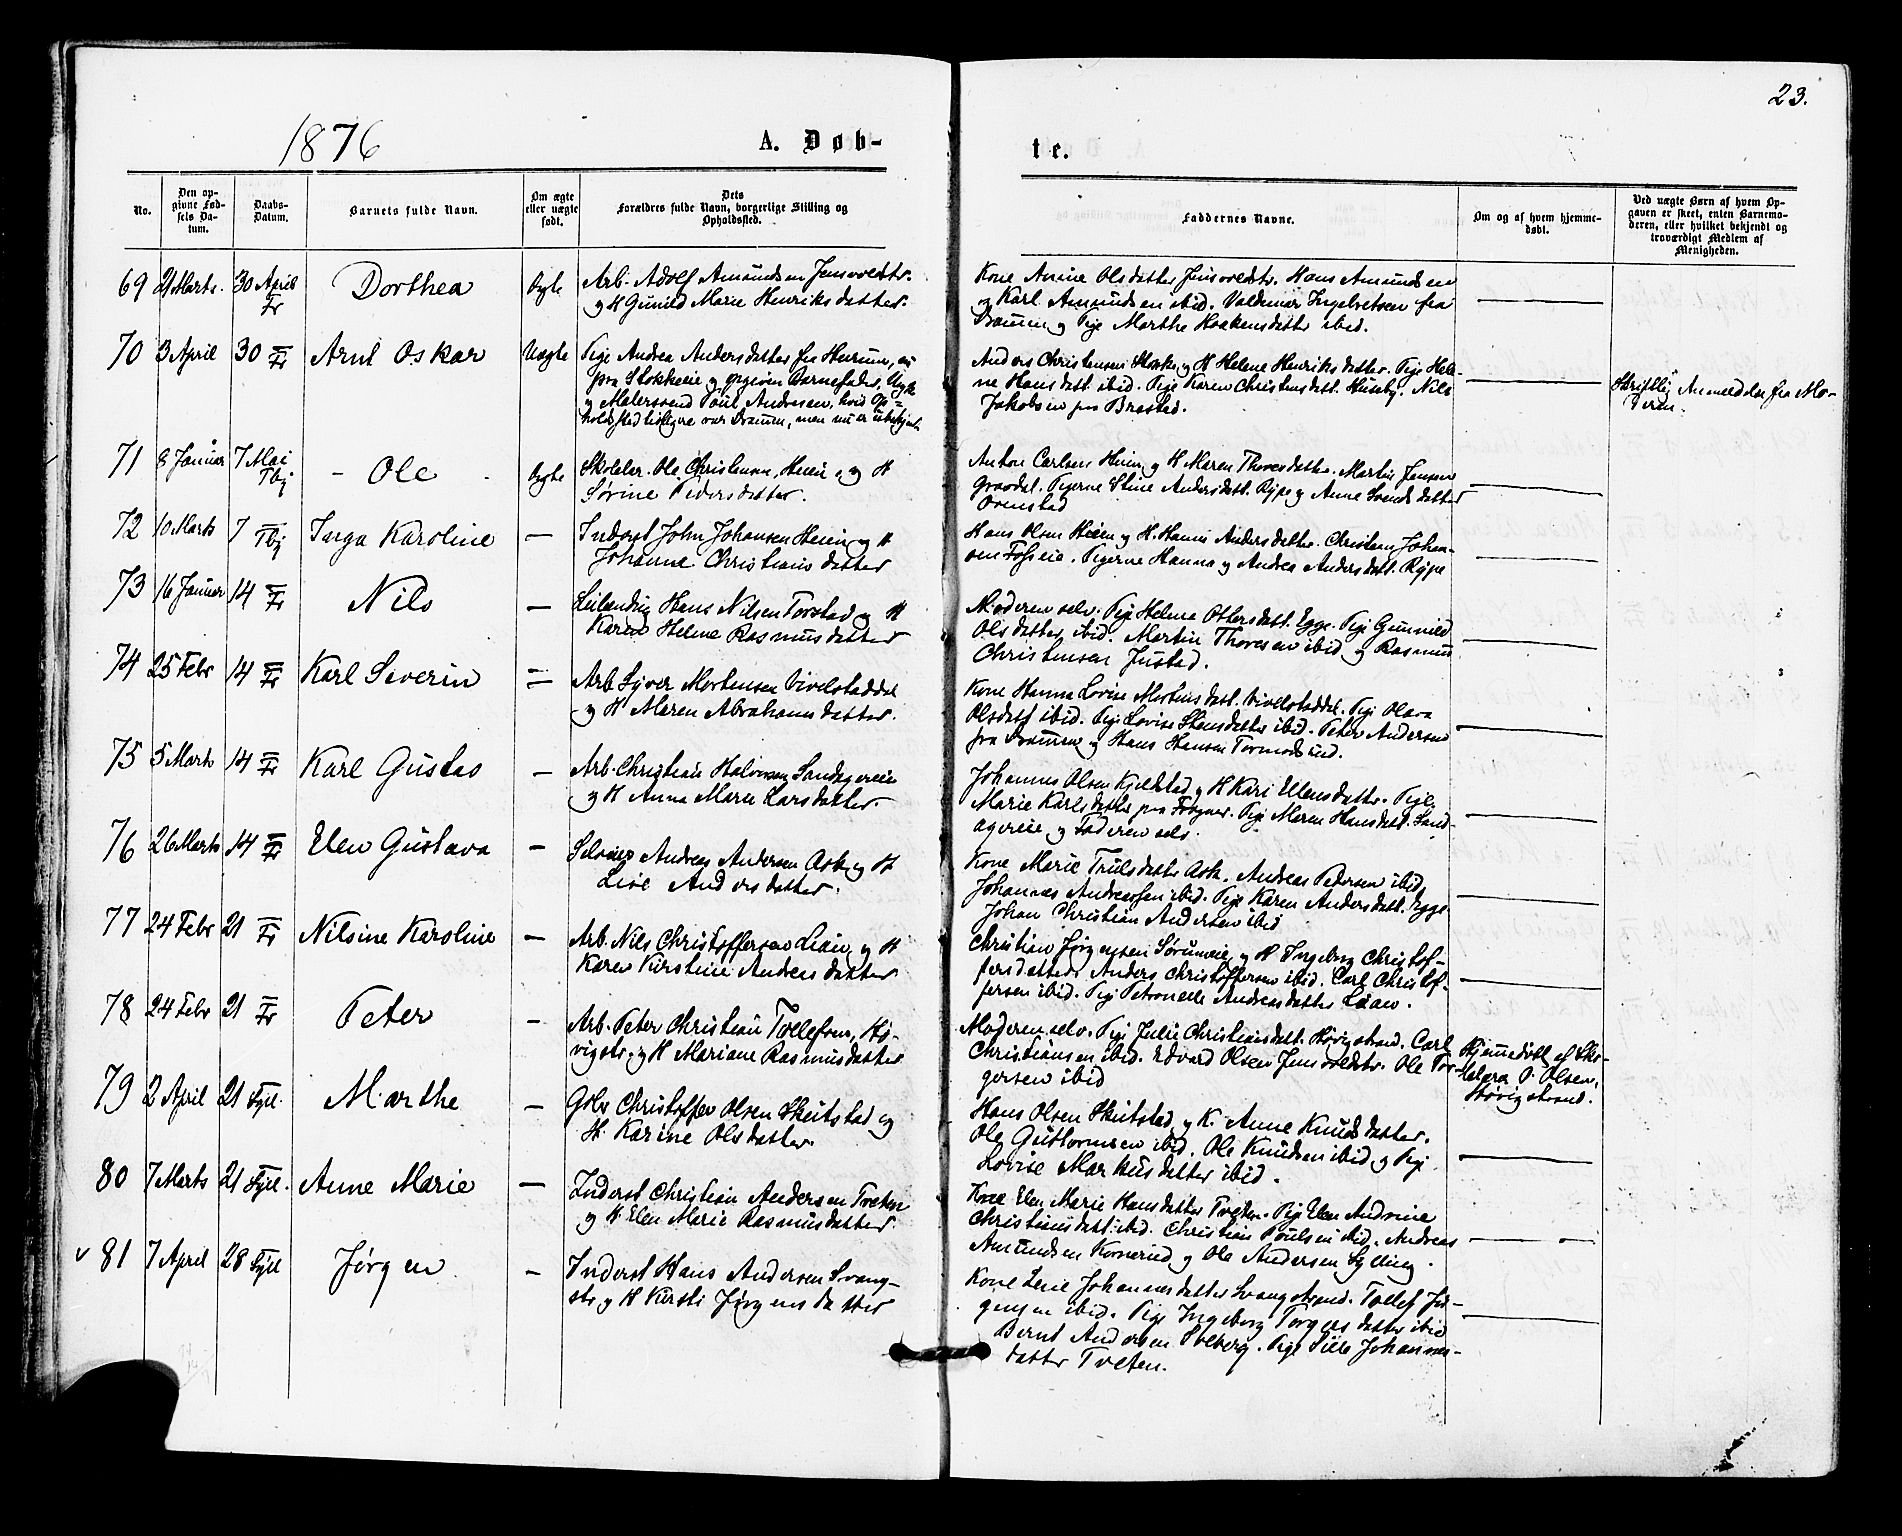 23.
1876
A. Døb-
te.
No.
Den op-
givne Fød-
sels Da-
tum.
Daabs-
Datum.
Barnets fulde Navn.
Om ægte
eller uægte
født.
Dets
Forældres fulde Navn, borgerlige Stilling og
Opholdssted.
Faddernes Navne.
Om og af hvem hjemme-
døbt.
Ved uægte Børn af hvem Op-
gaven er skeet, enten Barnemo-
deren, eller hvilket bekjendt og
troværdigt Medlem af
Menigheden.
69 21 Marts. 30 April
Fr
Dorthea
Ægte
Arb. Adolf Amundsen Jensvoldstr.
og H Gunild Marie Henriksdatter.
Kone Anine Olsdatter Jensvoldstr. Hans Amundsen
og Karl Amundsen ibid. Valdemar Ingebretsen fra
Drammen og Pige Marthe Haakensdatter ibid.
70 3 April 30 Fr
Arnt Oskar
Uægte
Pige Andrea Andersdatter fra Hurum, nu
paa Stokkeeie og opgiven Barnefader, Ungk.
og Malersvend Poul Andresen, hvis Op-
holdssted tidligere var Drammen, men nu er ubekjendt
Anders Christensen Stokke og H Helene Henriksdatter. Pige Hele-
ne Hansdatt ibid. Pige Karen Christensdatt. Huseby. Nils
Jakobsen paa Brastad.
Skriftlig Anmeldelse fra Mo-
deren.
71 8 Januar 7 Mai
Tbj
Ole
Ægte
Skolelær. Ole Christensen, Heien, og H
Sørine Pedersdatter.
Anton Carlsen Heien og H Maren Thoresdatter. Martin Jensen
Graadal. Pigerne Stine Andersdatt. Rype og Anne Svendsdatter
Ovnstad
72 10 Marts 7 Tbj
Inga Karoline
Inderst John Johansen Heien og H
Johanne Christiansdatter
Hans Olsen Heien og H. Hanna Andersdatter. Christian Johan-
sen Fosseie. Pigerne Hanna og Andrea Andersdatt. Rype
73 16 Januar 14 Fr
Nils
Leilænding Hans Nilsen Torstad og H
Karen Helene Rasmusdatter
Moderen selv. Pige Helena Ottersdatt. Egge. Pige Gunnild
Olsdatter ibid. Martin Thoresen ibid og Rasmus
Christensen Justad.
74 25 Febr 14 Fr
Karl Severin
Arb. Syver Mortensen Vivelstaddal
og H Maren Abrahamsdatter.
Kone Hanna Lovise Mortensdatt. Vivelstaddal. Pige Olava
Olsdatt ibid. Pige Lovise Stensdatter ibid. Peter Andersen
fra Drammen og Hans Hansen Tormodsrud.
75 5 Marts 14 Fr
Karl Gustav
Arb. Christian Halvorsen Sandagereie
og H Anna Maria Larsdatter.
Johannes Olsen Kjelstad og H Kari Ellensdatter. Pige
Marie Karlsdatter paa Frogner. Pige Maren Hansdatt. Sand-
agereie og Faderen selv.
76 26 Marts 14 Fr
Elen Gustava
Selveier Andreas Andersen Ask og H
Lise Andersdatter.
Kone Marie Trulsdatter Ask. Andreas Pedersen ibid
Johannes Andreassen ibid. Pige Karen Andersdatt. Egge.
Johan Christian Andersen ibid
77 24 Febr 21 Fr
Nilsine Karoline
Arb. Nils Christoffersen Lian og H
Karen Kirstine Andreasdatter
Christian Jørgensen Sørumeie og H Ingeborg Christof-
fersdatter Anders Christoffersen ibid. Carl Christof-
fersen ibid. Pige Petronelle Andreasdatter Lian.
78 24 Febr 21 Fr
Peter
Arb. Peter Christian Tollefsen, Hø-
vigstr. og H Mariane Rasmusdatter
Moderen selv. Pige Julie Christiansdatt. Høvigstrand. Carl
Christiansen ibid. Edvard Olsen Jensvoldstr. Ole Tor-
gersen ibid
Hjemmedøbt af Sko-
lelærer P. Olsen,
Høvigstrand.
79 2 April 21 Sjll.
Marthe
Gbr Christoffer Olsen Skeitstad og
H. Karine Olsdatter.
Hans Olsen Skeitstad og K. Anne Knudsdatter.
Ole Guttormsen ibid. Ole Knudsen ibid og Pige
Lovise Markusdatter ibid.
80 7 Marts 21 Sjll.
Anne Marie
Inderst Christian Andersen Tveten
og H. Elen Marie Rasmusdatter
Kone Elen Marie Hansdatter Tveten. Pige Elen Andrine
Christiansdatt. ibid. Christian Poulsen ibid. Andreas
Amundsen Kornerud og Ole Andersen Sylling.
v 81 7 April 28 Sjll
Jørgen
Inderst Hans Andersen Svang-
str. og H Kirsti Jørgensdatter
Kone Lene Johannesdatter Svangstrand. Tollef Jør-
gensen ibid. Pige Ingeborg Torgersdatter ibid
Bernt Andersen Solberg. Pige Sille Johannes-
datter Tveten.